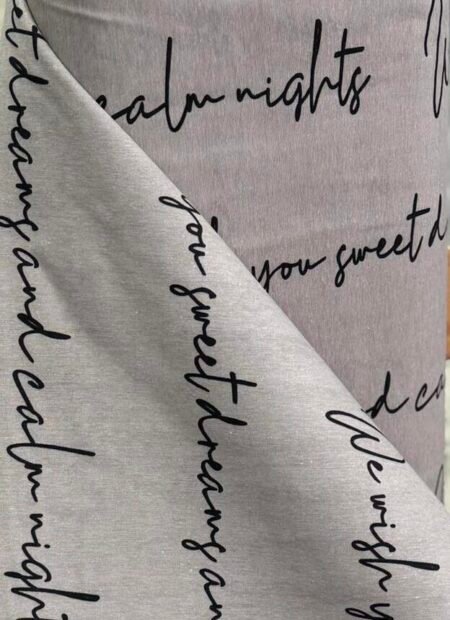 calm nights
you sweet d
d ca
et dreams and calm night
you sweet dreams an
We wish y